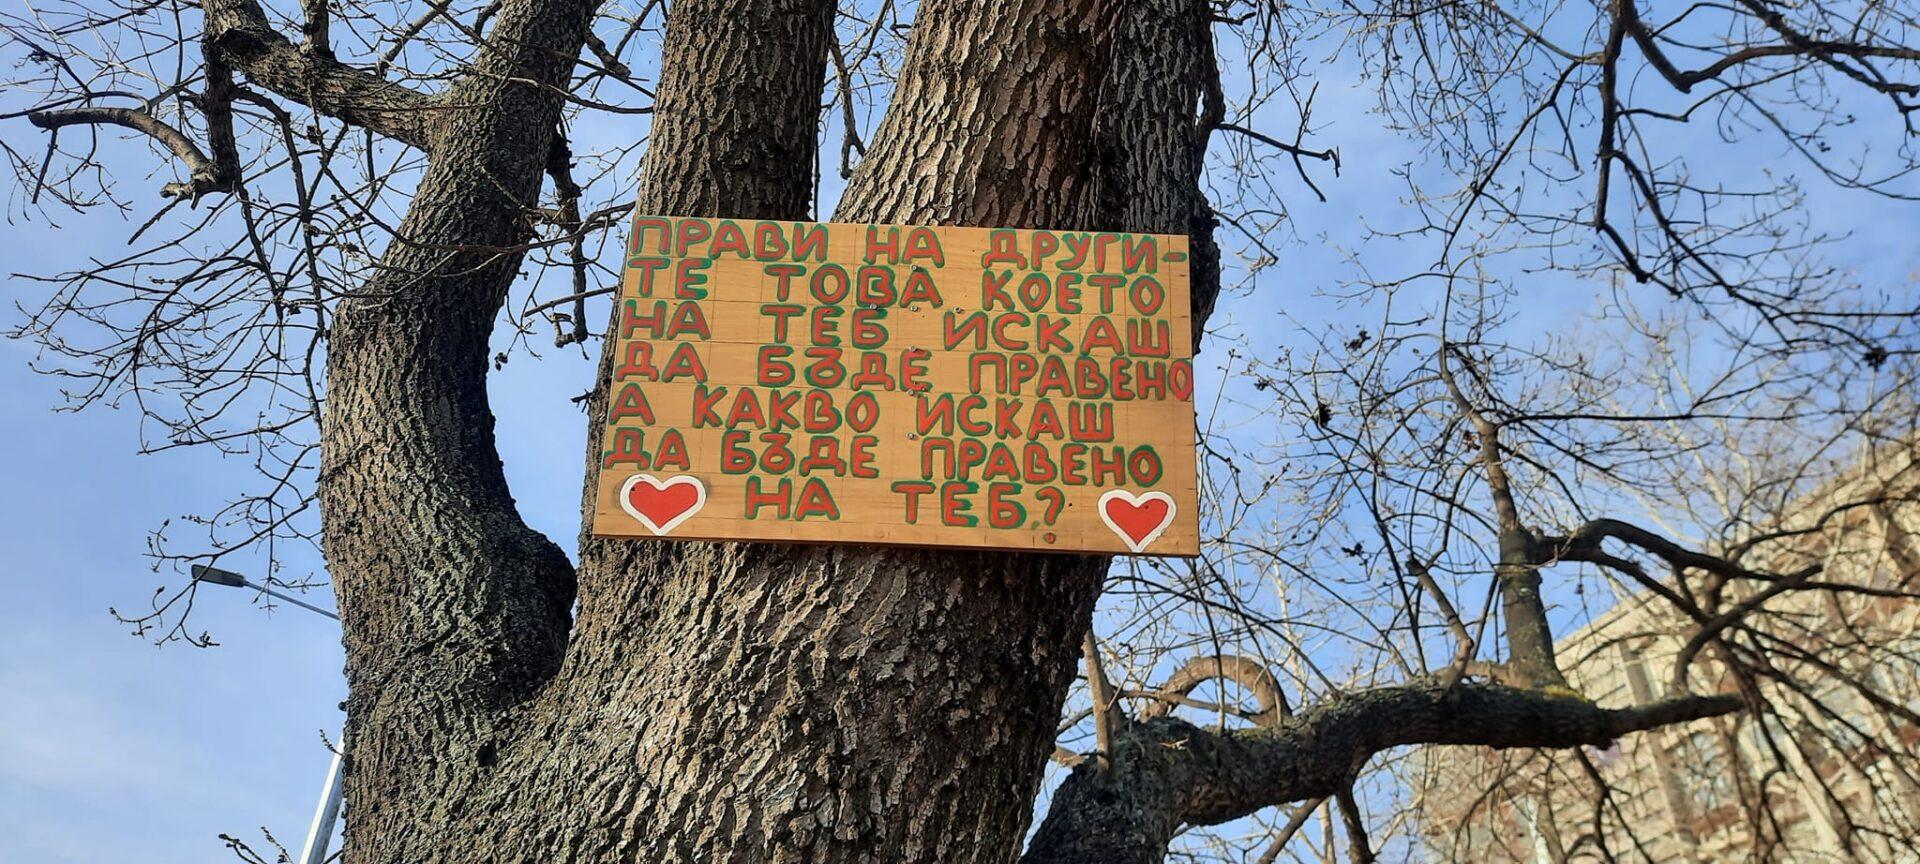 ПРАВИ НА ДРУГИ-
ТЕ ТОВА КОЕТО
НА ТЕБ ИСКАШ
ДА БЪДЕ ПРАВЕНО
А КАКВО ИСКАШ
ДА БЪДЕ ПРАВЕНО
НА ТЕБ?